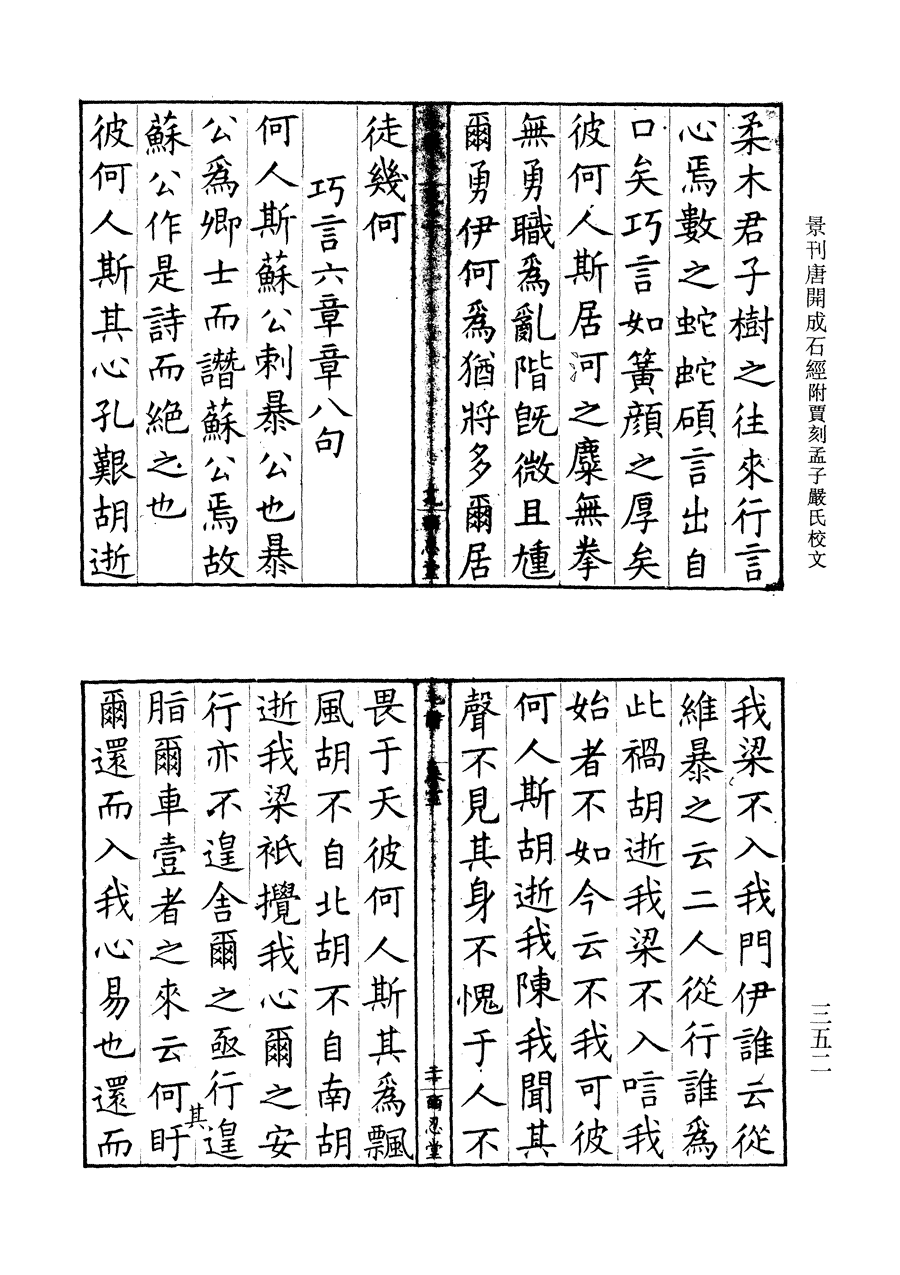 景刊唐開成石經附賈刻孟子嚴氏校文
柔木君子樹之往來行言
心焉數之蛇蛇碩言出自
口矣巧言如簧顏之厚矣
彼何人斯居河之麋無拳
無勇職爲亂階旣微且尰
爾勇伊何爲猶將多爾居
皕忍堂
徒幾何
巧言六章章八句
何人斯蘇公刺暴公也暴
公爲卿士而譖蘇公焉故
蘇公作是詩而絕之也
彼何人斯其心孔艱胡逝
我梁不入我門伊誰云從
維暴之云二人從行誰爲
此禍胡逝我梁不入唁我
始者不如今云不我可彼
何人斯胡逝我陳我聞其
聲不見其身不愧于人不
皕忍堂
畏于天彼何人斯其爲飄
風胡不自北胡不自南胡
逝我梁祇攪我心爾之安
行亦不遑舍爾之亟行遑
脂爾車壹者之來云何其盱
爾還而入我心易也還而
三五二